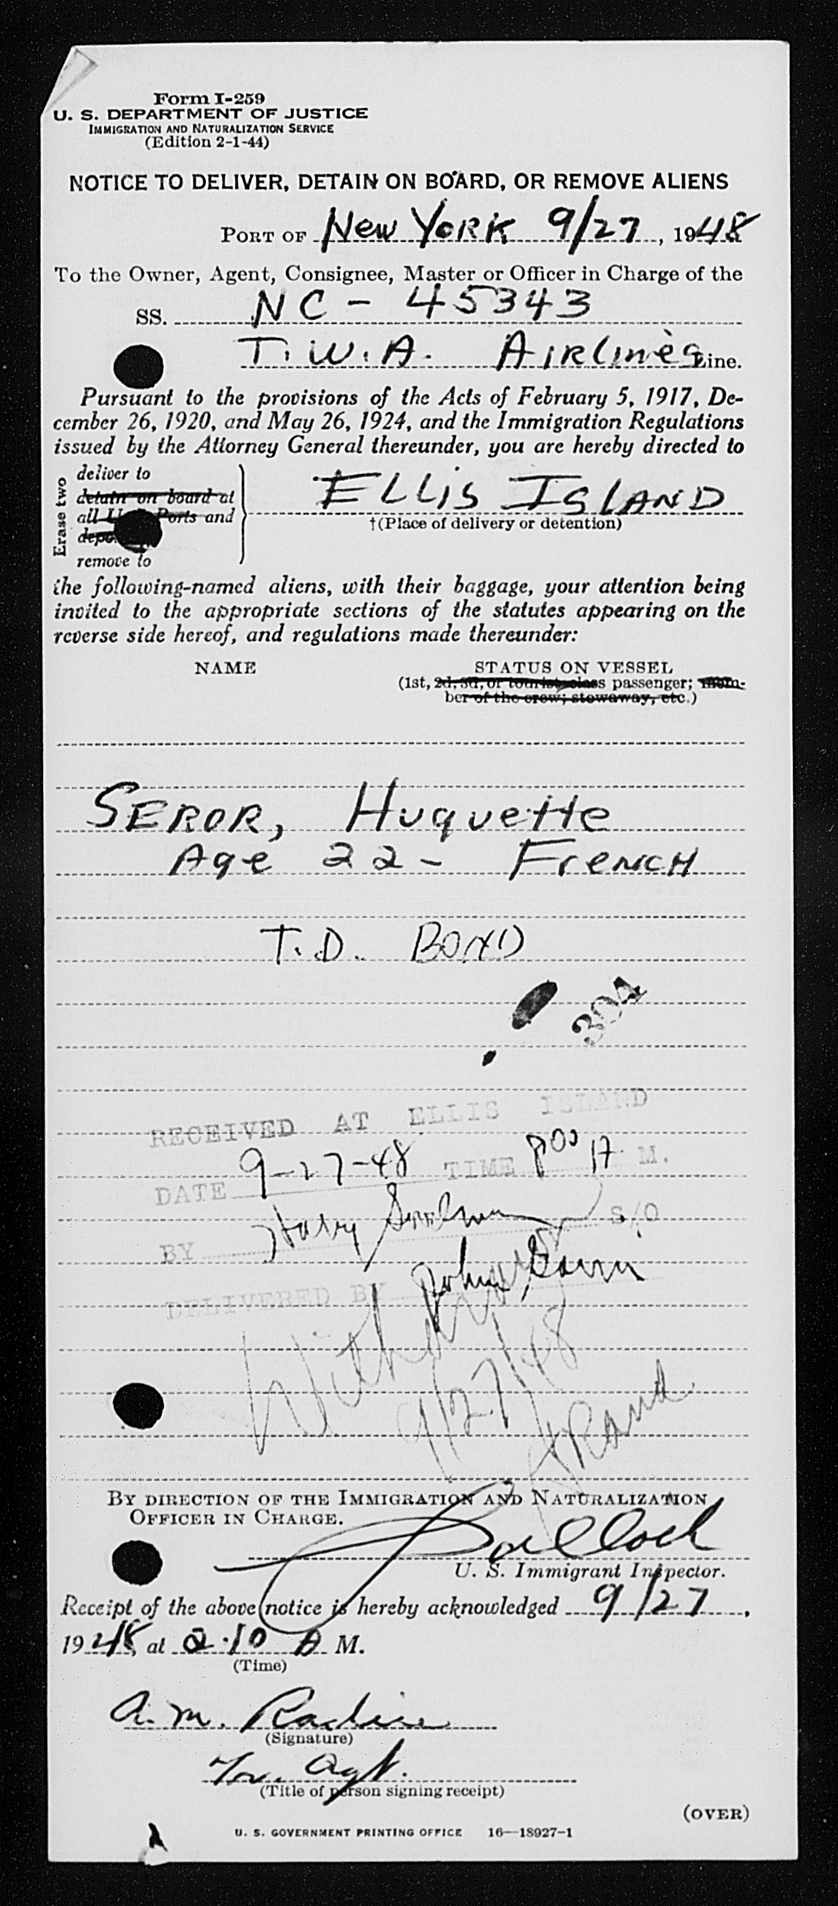 Form I-259
U. S. DEPARTMENT OF JUSTICE
IMMIGRATION AND NATURALIZATION SERVICE
(Edition 2-1-44)
NOTICE TO DELIVER, DETAIN ON BOARD, OR REMOVE ALIENS
PORT OF New York 9/27, 1948
To the Owner, Agent, Consignee, Master or Officer in Charge of the
SS. NC - 45343
T.W.A. Airlines Line.
Pursuant to the provisions of the Acts of February 5, 1917, De-
cember 26, 1920, and May 26, 1924, and the Immigration Regulations
issued by the Attorney General thereunder, you are hereby directed to
Erase two
deliver to
detain on board at
all U. S. Ports and
remove to
Ellis Island
†(Place of delivery or detention)
the following-named aliens, with their baggage, your attention being
invited to the appropriate sections of the statutes appearing on the
reverse side hereof, and regulations made thereunder:
NAME STATUS ON VESSEL
(1st, 2d, 3d, or tourist-class passenger; mem-
ber of the crew; stowaway, etc.)
SEROR, Huquette
Age 22 - French
T.D. BOND
304
RECEIVED AT ELLIS ISLAND
DATE 9-27-48 TIME 8 00 A M.
BY Harry S/O
DELIVERED BY John
9/27/48
BY DIRECTION OF THE IMMIGRATION AND NATURALIZATION
OFFICER IN CHARGE.
U. S. Immigrant Inspector.
Receipt of the above notice is hereby acknowledged 9/27,
1948, at 2:10 A M.
(Time)
A. M.
(Signature)
Agt.
(Title of person signing receipt)
(OVER)
U. S. GOVERNMENT PRINTING OFFICE 16—18927-1